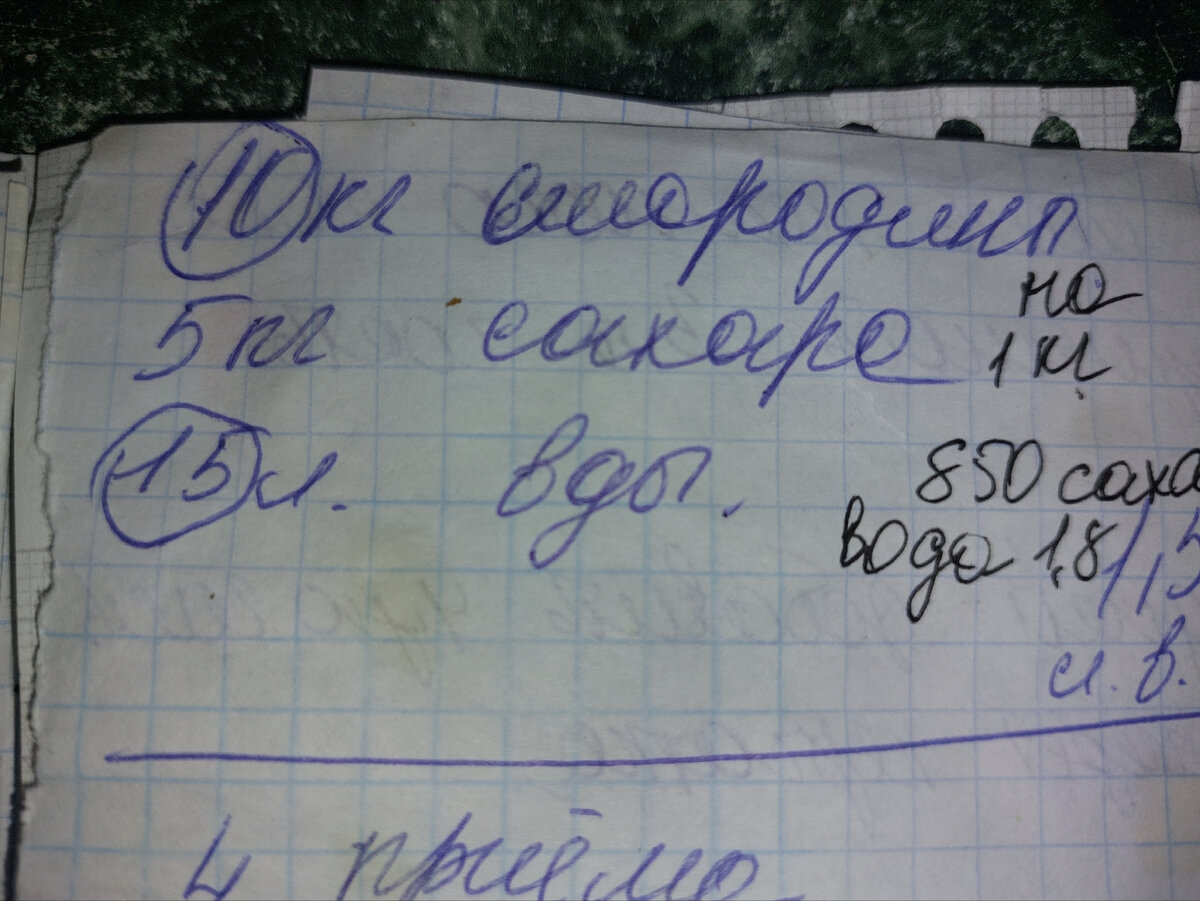 10 кг смородины
5 кг сахара
на
1 кг
15 л. вды.
850 саха
вода 1,8 1,5
л. в.
4 приёма